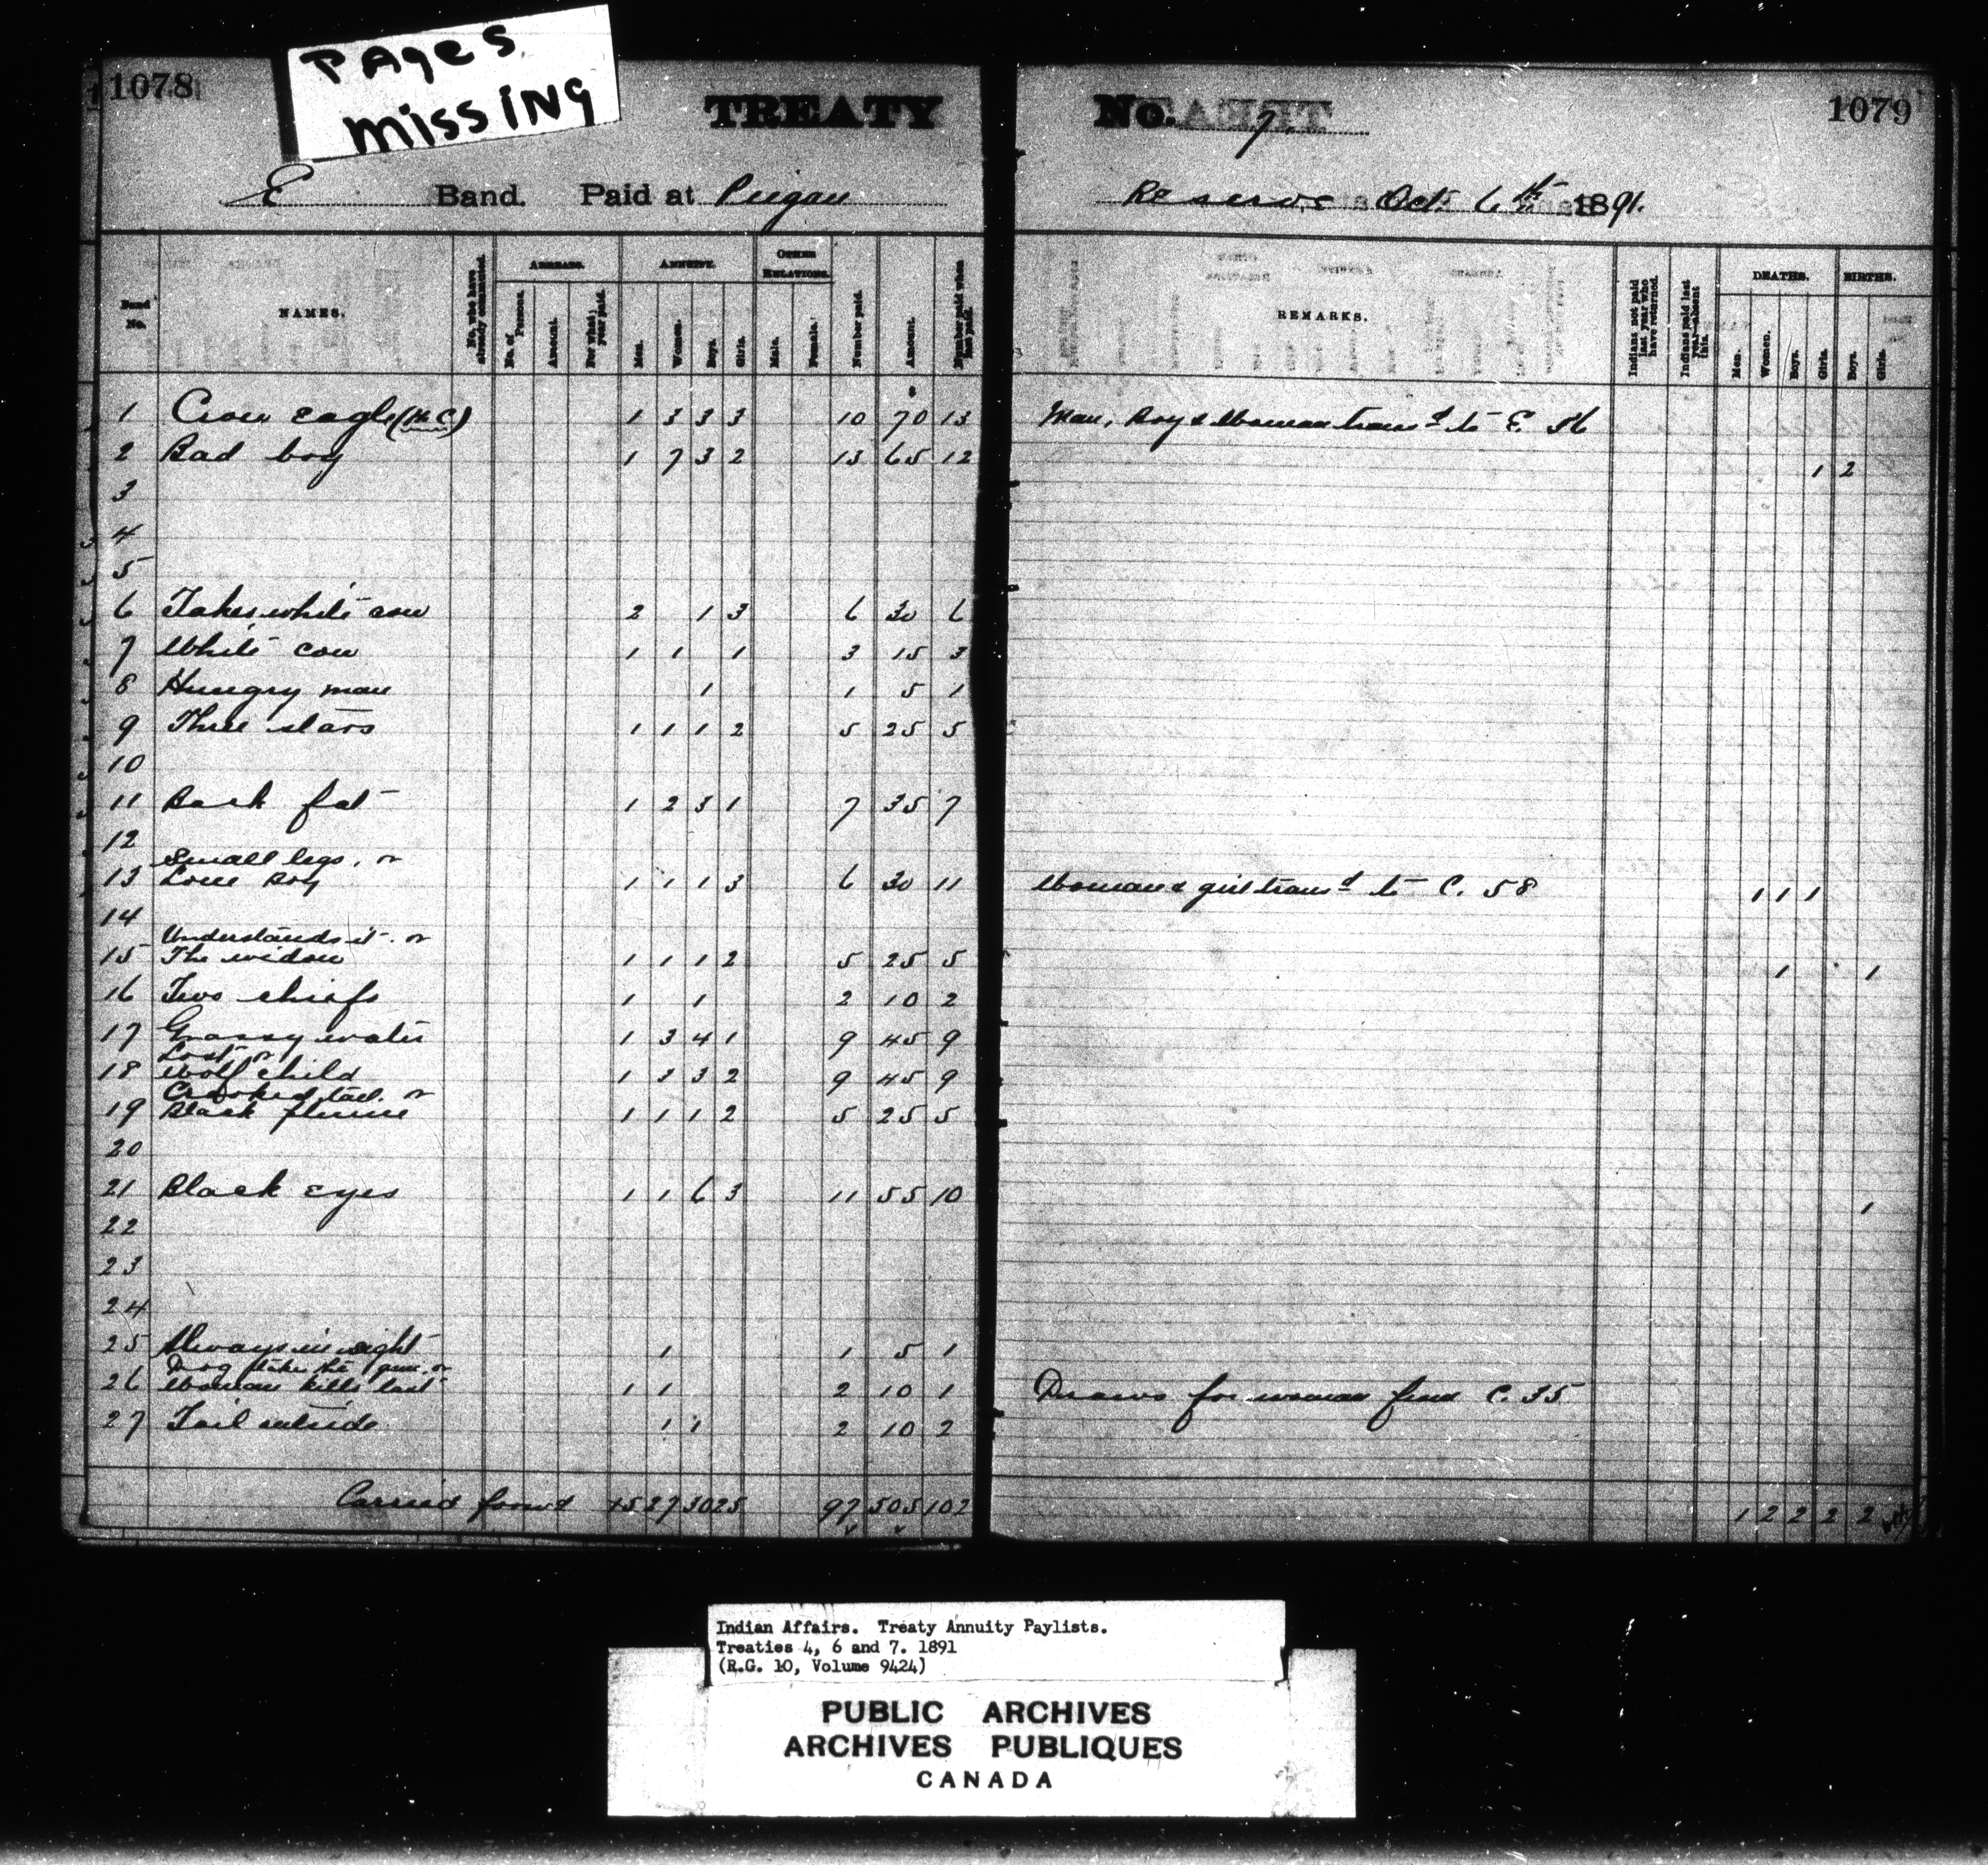 PAges
missing
1078
TREATY
No. 7.
1079
E Band. Paid at Peigan
Reserve Oct. 6th 1891.
Band No.
NAMES.
No. who have already commuted.
ARREARS.
No. of Persons.
Amount.
For what year paid.
ANNUITY.
Men.
Women.
Boys.
Girls.
OTHER RELATIONS.
Male.
Female.
Number paid.
Amount.
Number paid when last paid.
REMARKS.
Indians not paid last year who have returned.
Indians paid last year—absent this.
DEATHS.
Men.
Women.
Boys.
Girls.
BIRTHS.
Boys.
Girls.
1 Crow eagle (M.C) 1 3 3 3 10 70 13 Man, Boy & Woman transd to E. 56
2 Bad boy 1 7 3 2 13 65 12 1 2
3
4
5
6 Takes white cow 2 1 3 6 30 6
7 White cow 1 1 1 3 15 3
8 Hungry man 1 1 5 1
9 Three stars 1 1 1 2 5 25 5
10
11 Back fat 1 2 3 1 7 35 7
12
Small legs, or
13 Lone Boy 1 1 1 3 6 30 11 Woman & girl transd to C. 58 1 1 1
14
Understands it. or
15 The widow 1 1 1 2 5 25 5 1 1
16 Two chiefs 1 1 2 10 2
17 Grassy water 1 3 4 1 9 45 9
Lost or
18 Wolf child 1 3 3 2 9 45 9
Crooked tail. or
19 Black plume 1 1 1 2 5 25 5
20
21 Black eyes 1 1 6 3 11 55 10 1
22
23
24
25 Always in sight 1 1 5 1
Dog takes the gun. or
26 Woman kills last 1 1 2 10 1 Draws for woman from C. 35
27 Tail outside 1 1 2 10 2
Carried forwd 15 27 30 25 97 505 102 1 2 2 2 2
Indian Affairs. Treaty Annuity Paylists.
Treaties 4, 6 and 7. 1891
(R.G. 10, Volume 9424)
PUBLIC ARCHIVES
ARCHIVES PUBLIQUES
CANADA